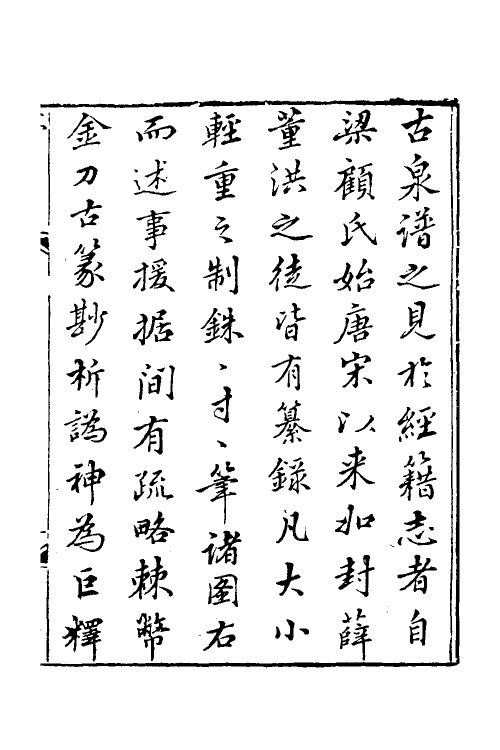 古泉譜之見於經籍志者自
梁顧氏始唐宋以来如封薛
董洪之徒皆有纂錄凡大小
輕重之制銖〻寸〻筆諸圖右
而述事援据間有疏略棘幣
金刀古篆尠析譌神為巨釋